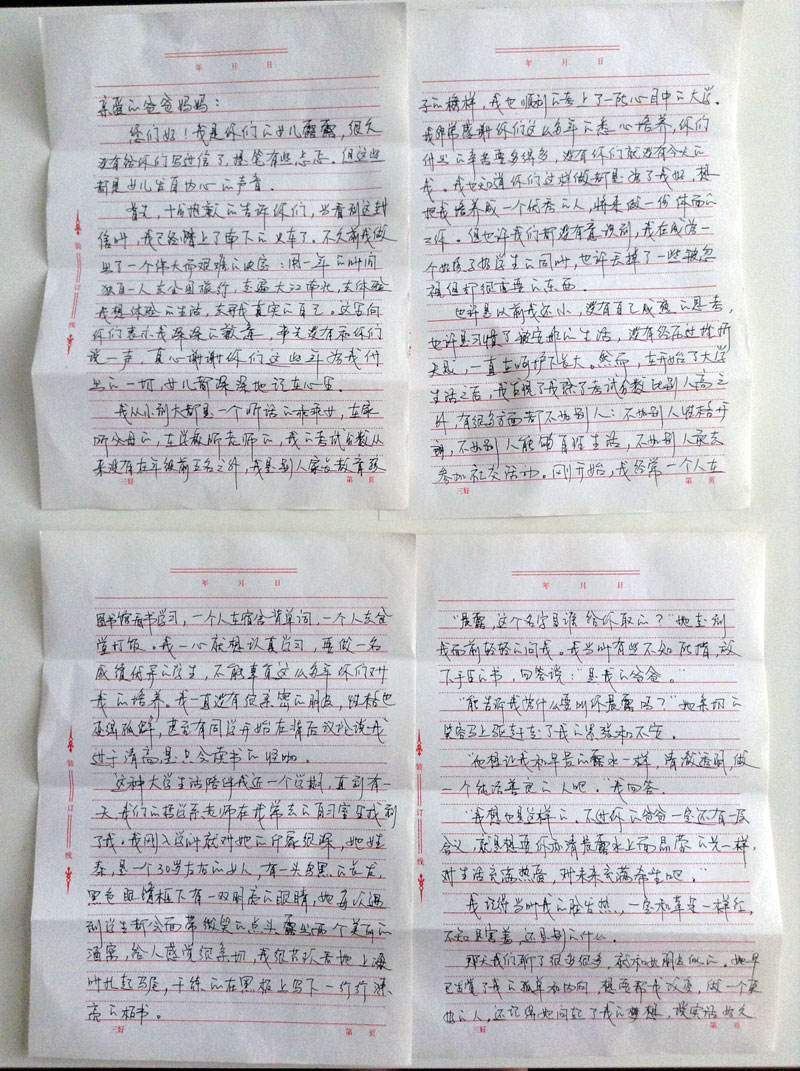 年 月 日
亲爱的爸爸妈妈：
您们好！我是你们的女儿露露，很久
没有给你们写过信了，提笔有些忐忑。但这些
都是女儿发自内心的声音。
首先，十分抱歉的告诉你们，当看到这封
信时，我已经踏上了南下的火车了。不久前我做
出了一个伟大而艰难的决定：用一年的时间
独自一人去全国旅行，走遍大江南北，去体验
我想体验的生活，去寻找真实的自己。这里向
你们表示我深深的歉意，事先没有和你们
说一声，真心谢谢你们这些年为我付
出的一切，女儿都深深地记在心里。
我从小到大都是一个听话的乖乖女，在家
听父母的，在学校听老师的，我的考试分数从
来没有在年级前五名之外，我是别人家长教育孩
三好 第 页
装 订 线
年 月 日
子的榜样，我也顺利的考上了一所心目中的大学。
我非常感谢你们这么多年的悉心培养，你们
付出的辛苦要多得多，没有你们就没有今天的
我。我也知道你们这样做都是为了我好，想
把我培养成一个优秀的人，将来做一份体面的
工作。但也许我们都没有意识到，我在成为一
个好孩子好学生的同时，也许丢掉了一些被忽
视但打很重要的东西。
也许是以前我还小，没有自己成熟的思考，
也许是习惯了被安排的生活，没有经历过挫折
失败，一直在呵护下长大。然而，在开始了大学
生活之后，我发现了我除了考试分数比别人高之
外，有很多方面都不如别人：不如别人性格开
朗，不如别人能够自理生活，不如别人敢去
参加社交活动。刚开始，我经常一个人在
三好 第 页
年 月 日
图书馆看书学习，一个人在宿舍背单词，一个人去食
堂打饭。我一心就想认真学习，再做一名
成绩优异的学生，不能辜负这么多年你们对
我的培养。我一直没有很亲密的朋友，性格也
变得孤僻，甚至有同学开始在背后议论说我
过于清高，是只会读书的怪咖。
这种大学生活陪伴我近一个学期，直到有一
天，我们的授学系老师在我常去的自习室里找到
了我。我刚入学时就对她的印象很深，她姓
秦，是一个30岁左右的女人，有一头乌黑的长发，
黑色眼镜框下有一双明亮的眼睛，她每次遇
到学生都会面带微笑的点头，露出两个美丽的
酒窝，给人感觉很亲切，我很喜欢看她上课
时扎起马尾，干练的在黑板上写下一行行漂
亮的板书。
三好 第 页
装 订 线
年 月 日
“晨露，这个名字是谁给你取的？”她走到
我面前轻轻的问我。我当时有些不知所措，放
下手里的书，回答说：“是我的爸爸。”
“能告诉我为什么要叫你晨露吗？”她亲切的
笑容马上驱赶走了我的紧张和不安。
“他想让我和早晨的露水一样，清澈透明，做
一个纯洁善良的人吧。”我回答。
“我想也是这样的，不过你的爸爸一定还有一层
含义，就是想要你如清晨露水上面晶莹的光一样，
对生活充满热爱，对未来充满希望吧。”
我记得当时我的脸发热，一定和苹果一样红，
不知是害羞，还是别的什么。
那天我们聊了很多很多，就和好朋友似的。她早
已注意了我的孤单和彷徨，想要帮我改变，做一个更
好的人。还记得她问起了我的梦想，说实话好久
三好 第 页
装 订 线